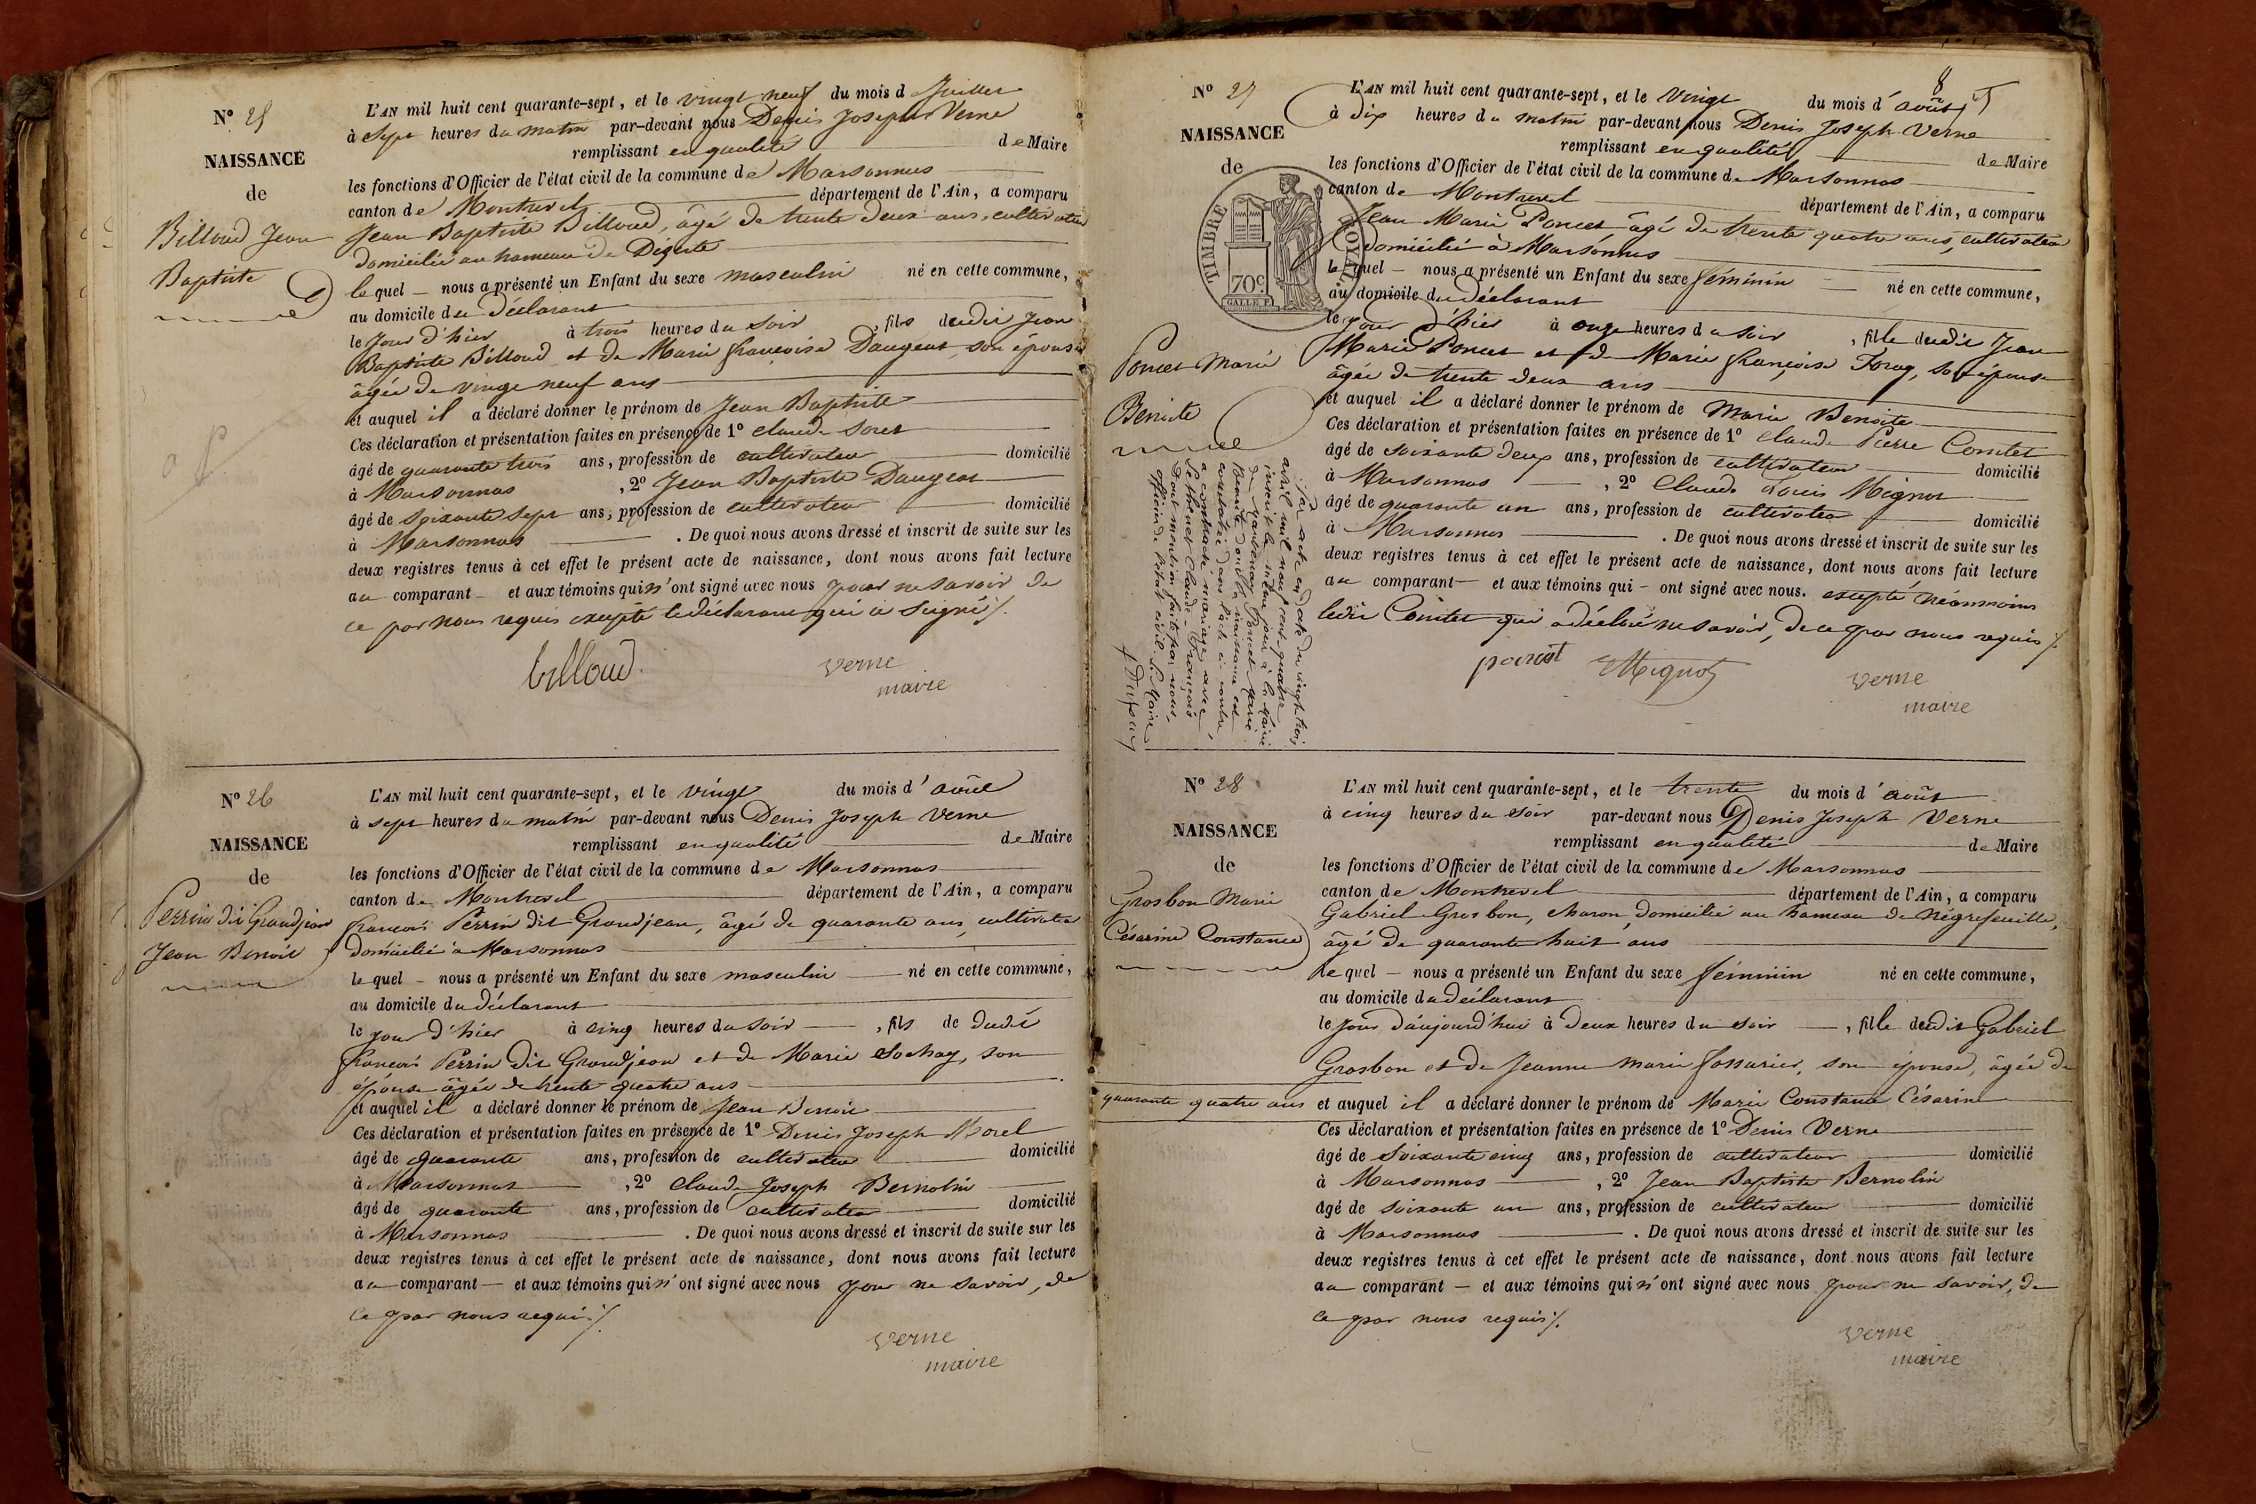 N° 25
NAISSANCE
de
Billoud Jean
Baptiste
L'AN mil huit cent quarante-sept, et le vingt neuf du mois d Juillet
à Sept heures du matin par-devant nous Denis Joseph Verne
remplissant en qualité de Maire
les fonctions d'Officier de l'état civil de la commune de Marsonnas
canton de Montrevel département de l'Ain, a comparu
Jean Baptiste Billoud, âgé de trente deux ans, cultivateur
domicilié au hameau de
le quel nous a présenté un Enfant du sexe masculin né en cette commune,
au domicile du Déclarant
le jour d'hier à trois heures du soir, fils dudit Jean
Baptiste Billoud et de Marie françoise Daujeat, son épouse
âgée de vingt neuf ans
et auquel il a déclaré donner le prénom de Jean Baptiste
Ces déclaration et présentation faites en présence de 1° Claude
âgé de quarante trois ans, profession de cultivateur domicilié
à Marsonnas, 2° Jean Baptiste Daujeat
âgé de soixante sept ans, profession de cultivateur domicilié
à Marsonnas. De quoi nous avons dressé et inscrit de suite sur les
deux registres tenus à cet effet le présent acte de naissance, dont nous avons fait lecture
au comparant et aux témoins qui n'ont signé avec nous pour ne savoir de
ce par nous requis excepté le déclarant qui a signé ./.
billoud
verne
maire
N° 26
NAISSANCE
de
Perrin dit Grandjean
Jean Benoit
L'AN mil huit cent quarante-sept, et le vingt du mois d'août
à sept heures du matin par-devant nous Denis Joseph Verne
remplissant en qualité de Maire
les fonctions d'Officier de l'état civil de la commune de Marsonnas
canton de Montrevel département de l'Ain, a comparu
françois Perrin dit Grandjean, âgé de quarante ans, cultivateur
domicilié à Marsonnas
le quel nous a présenté un Enfant du sexe masculin né en cette commune,
au domicile du déclarant
le jour d'hier à cinq heures du soir, fils de dudit
françois Perrin dit Grandjean et de Marie Sochay, son
épouse âgée de trente quatre ans
et auquel il a déclaré donner le prénom de Jean Benoit
Ces déclaration et présentation faites en présence de 1° Denis Joseph Morel
âgé de quarante ans, profession de cultivateur domicilié
à Marsonnas, 2° Claude Joseph Bernolin
âgé de quarante ans, profession de cultivateur domicilié
à Marsonnas. De quoi nous avons dressé et inscrit de suite sur les
deux registres tenus à cet effet le présent acte de naissance, dont nous avons fait lecture
au comparant et aux témoins qui n'ont signé avec nous pour ne savoir, de
ce par nous requis ./.
verne
maire
8
N° 27
NAISSANCE
de
TIMBRE ROYAL
70 c
Poncet Marie
Benoite
L'AN mil huit cent quarante-sept, et le vingt du mois d'août
à dix heures du matin par-devant nous Denis Joseph Verne
remplissant en qualité de Maire
les fonctions d'Officier de l'état civil de la commune de Marsonnas
canton de Montrevel département de l'Ain, a comparu
Jean Marie Poncet âgé de trente quatre ans, cultivateur
domicilié à Marsonnas
le quel nous a présenté un Enfant du sexe féminin né en cette commune,
au domicile du déclarant
le jour d'hier à onze heures du soir, fille dudit Jean
Marie Poncet et de Marie françoise Foray, son épouse
âgée de trente deux ans
et auquel il a déclaré donner le prénom de Marie Benoite
Ces déclaration et présentation faites en présence de 1° Claude Pierre Comtet
âgé de soixante deux ans, profession de cultivateur domicilié
à Marsonnas, 2° Claude Louis Mignot
âgé de quarante un ans, profession de cultivateur domicilié
à Marsonnas. De quoi nous avons dressé et inscrit de suite sur les
deux registres tenus à cet effet le présent acte de naissance, dont nous avons fait lecture
au comparant et aux témoins qui ont signé avec nous. excepté néanmoins
ledit Comtet qui a déclaré ne savoir, de ce par nous requis ./.
Mignot
verne
maire
Par acte en date du vingt trois
avril mil neuf cent quatre
inscrit le même jour à la Mairie
de Poncet Marie
Benoite dont la naissance est
constatée dans l'acte ci contre,
a contracté mariage avec
Claude François
Dont mention faite par nous,
officier de l'état civil. Le Maire
N° 28
NAISSANCE
de
Grosbon Marie
Césarine Constance
L'AN mil huit cent quarante-sept, et le trente du mois d'août
à cinq heures du soir par-devant nous Denis Joseph Verne
remplissant en qualité de Maire
les fonctions d'Officier de l'état civil de la commune de Marsonnas
canton de Montrevel département de l'Ain, a comparu
Gabriel Grosbon, charon, domicilié au hameau de Négrefeuille,
âgé de quarante huit ans
le quel nous a présenté un Enfant du sexe féminin né en cette commune,
au domicile du déclarant
le jour d'aujourd'hui à deux heures du soir, fille dudit Gabriel
Grosbon et de Jeanne Marie son épouse, âgée de
quarante quatre ans et auquel il a déclaré donner le prénom de Marie Constance Césarine
Ces déclaration et présentation faites en présence de 1° Denis Verne
âgé de soixante cinq ans, profession de cultivateur domicilié
à Marsonnas, 2° Jean Baptiste Bernolin
âgé de soixante un ans, profession de cultivateur domicilié
à Marsonnas. De quoi nous avons dressé et inscrit de suite sur les
deux registres tenus à cet effet le présent acte de naissance, dont nous avons fait lecture
au comparant et aux témoins qui n'ont signé avec nous pour ne savoir, de
ce par nous requis ./.
verne
maire